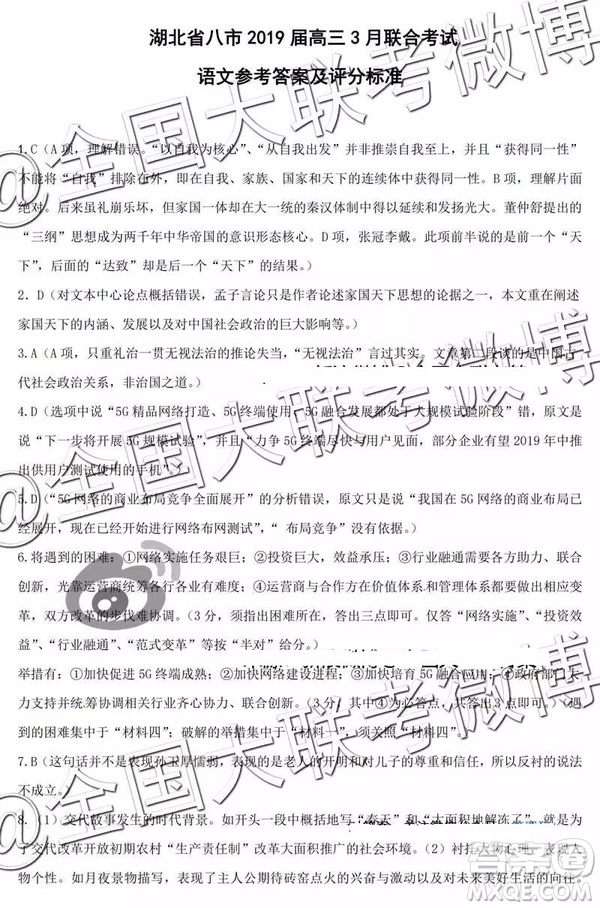 湖北省八市 2019 届高三 3 月联合考试
语文参考答案及评分标准
1.C（A 项，理解错误。“以自我为核心”、“从自我出发”并非推崇自我至上，并且“获得同一性”
不能将“自我”排除在外，即在自我、家族、国家和天下的连续体中获得同一性。B 项，理解片面
绝对。后来虽礼崩乐坏，但家国一体却在大一统的秦汉体制中得以延续和发扬光大。董仲舒提出的
“三纲”思想成为两千年中华帝国的意识形态核心。D 项，张冠李戴。此项前半说的是前一个“天
下”，后面的“达致”却是后一个“天下”的结果。）
2．D（对文本中心论点概括错误，孟子言论只是作者论述家国天下思想的论据之一，本文重在阐述
家国天下的内涵、发展以及对中国社会政治的巨大影响等。）
3.A（A 项，只重礼治一贯无视法治的推论失当，“无视法治”言过其实。文章第二段谈的是中国古
代社会政治关系，非治国之道。）
4.D（选项中说“5G 精品网络打造、5G 终端使用、5G 融合发展都处于大规模试验阶段”错，原文是
说“下一步将开展 5G 规模试验”，并且“力争 5G 终端尽快与用户见面，部分企业有望 2019 年中推
出供用户测试使用的手机”。）
5.D（“5G 网络的商业布局竞争全面展开”的分析错误，原文只是说“我国在 5G 网络的商业布局已
经展开，现在已经开始进行网络布网测试”，“ 布局竞争”无以体现。）
6.将遇到的困难：①网络实施任务艰巨；②投资高企，效益承压；③行业融通需各方助力、联合
创新，光靠运营商统筹各行各业难以完成；④运营商与合作方在价值体系和管理体系等方面存在不
同，双方改革的步伐难协调。（3 分，须指出困难所在，一点且三点即可。仅答“网络实施”、“投资效
益”、“行业融通”、“范式变革”等按“半对”给分。）
举措有：①加快促进 5G 终端成熟；②加快网络建设进程；③加快培育 5G 融合应用；④政府部门大
力支持并统筹协调相关行业齐心协力、联合创新。（3 分，其中④为必答点，共答出 3 点即可。）（困
难集中于“材料四”；破解的举措不集中于一，须关照“材料四”。）
7.B（这句话并不表现孙玉厚懦弱，表现的是老人的开明和对儿子的尊重信任，所以反衬的说法
不成立。）
8.（1）交代故事发生的时代背景。如开头一段中概括地写“春天”和“大面积地解冻了”，就是为了
交代改革开放初期农村“责任制”改革大面积推广的社会环境。（2）衬托人物心理，表现人
物个性。如月夜景物描写，表现了主人公期待砖窑点火的兴奋与激动以及对未来美好生活的向往。